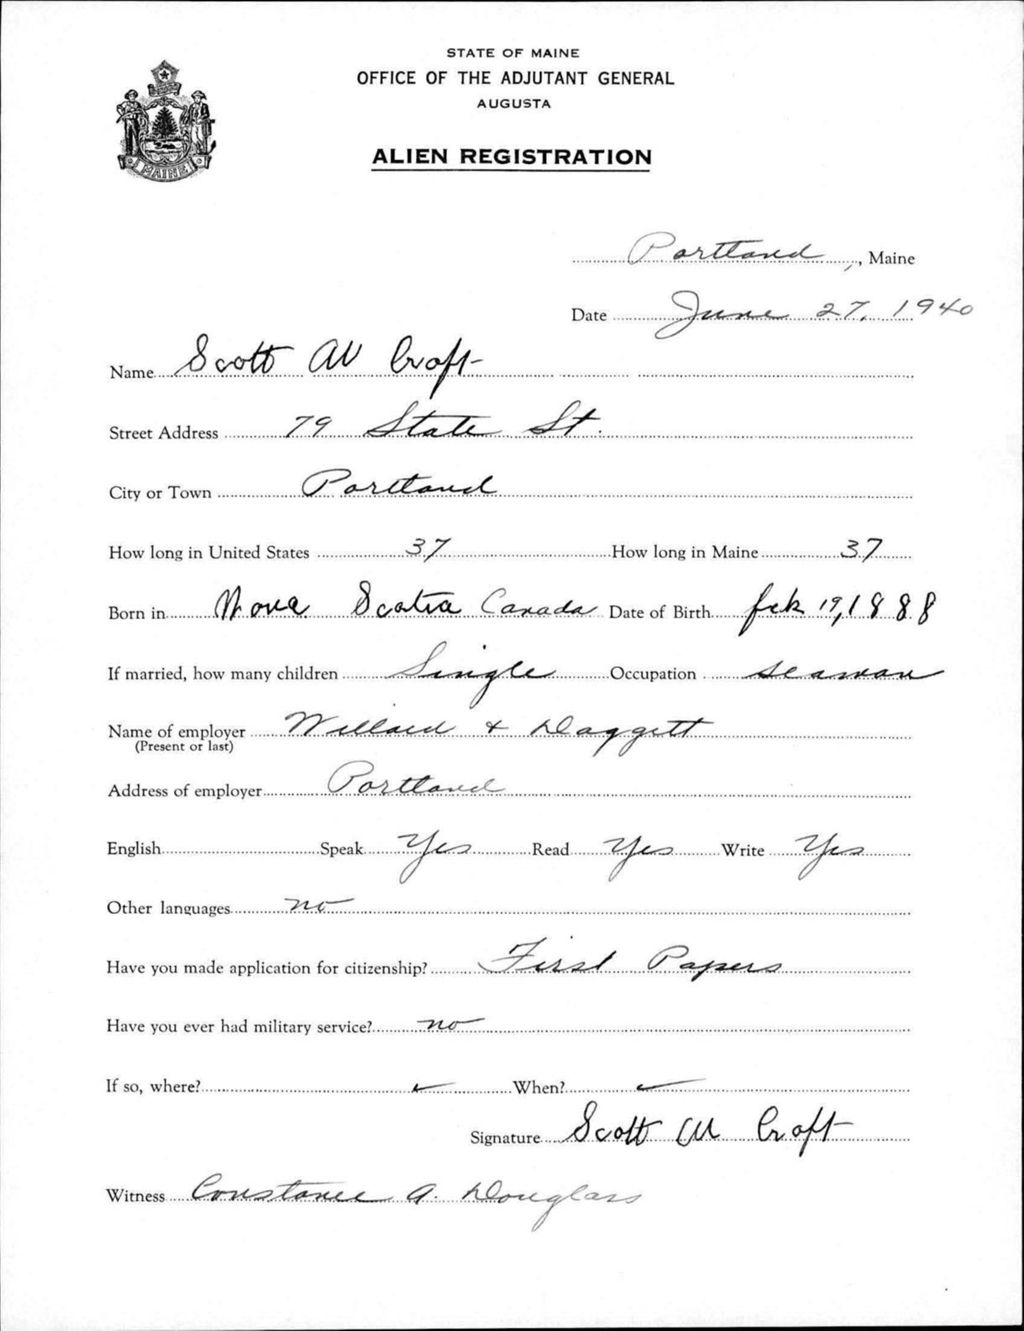 STATE OF MAINE
OFFICE OF THE ADJUTANT GENERAL
AUGUSTA
ALIEN REGISTRATION
MAINE
Portland, Maine
Date June 27, 1940
Name Scott W Croft
Street Address 79 State St.
City or Town Portland
How long in United States 37 How long in Maine 37
Born in Nova Scotia Canada Date of Birth feb 19, 1888
If married, how many children Single Occupation seaman
Name of employer Willard & Daggett
(Present or last)
Address of employer Portland
English Speak Yes Read Yes Write Yes
Other languages no
Have you made application for citizenship? First Papers
Have you ever had military service? no
If so, where? ✓ When? ✓
Signature Scott Croft
Witness Constance A. Douglass